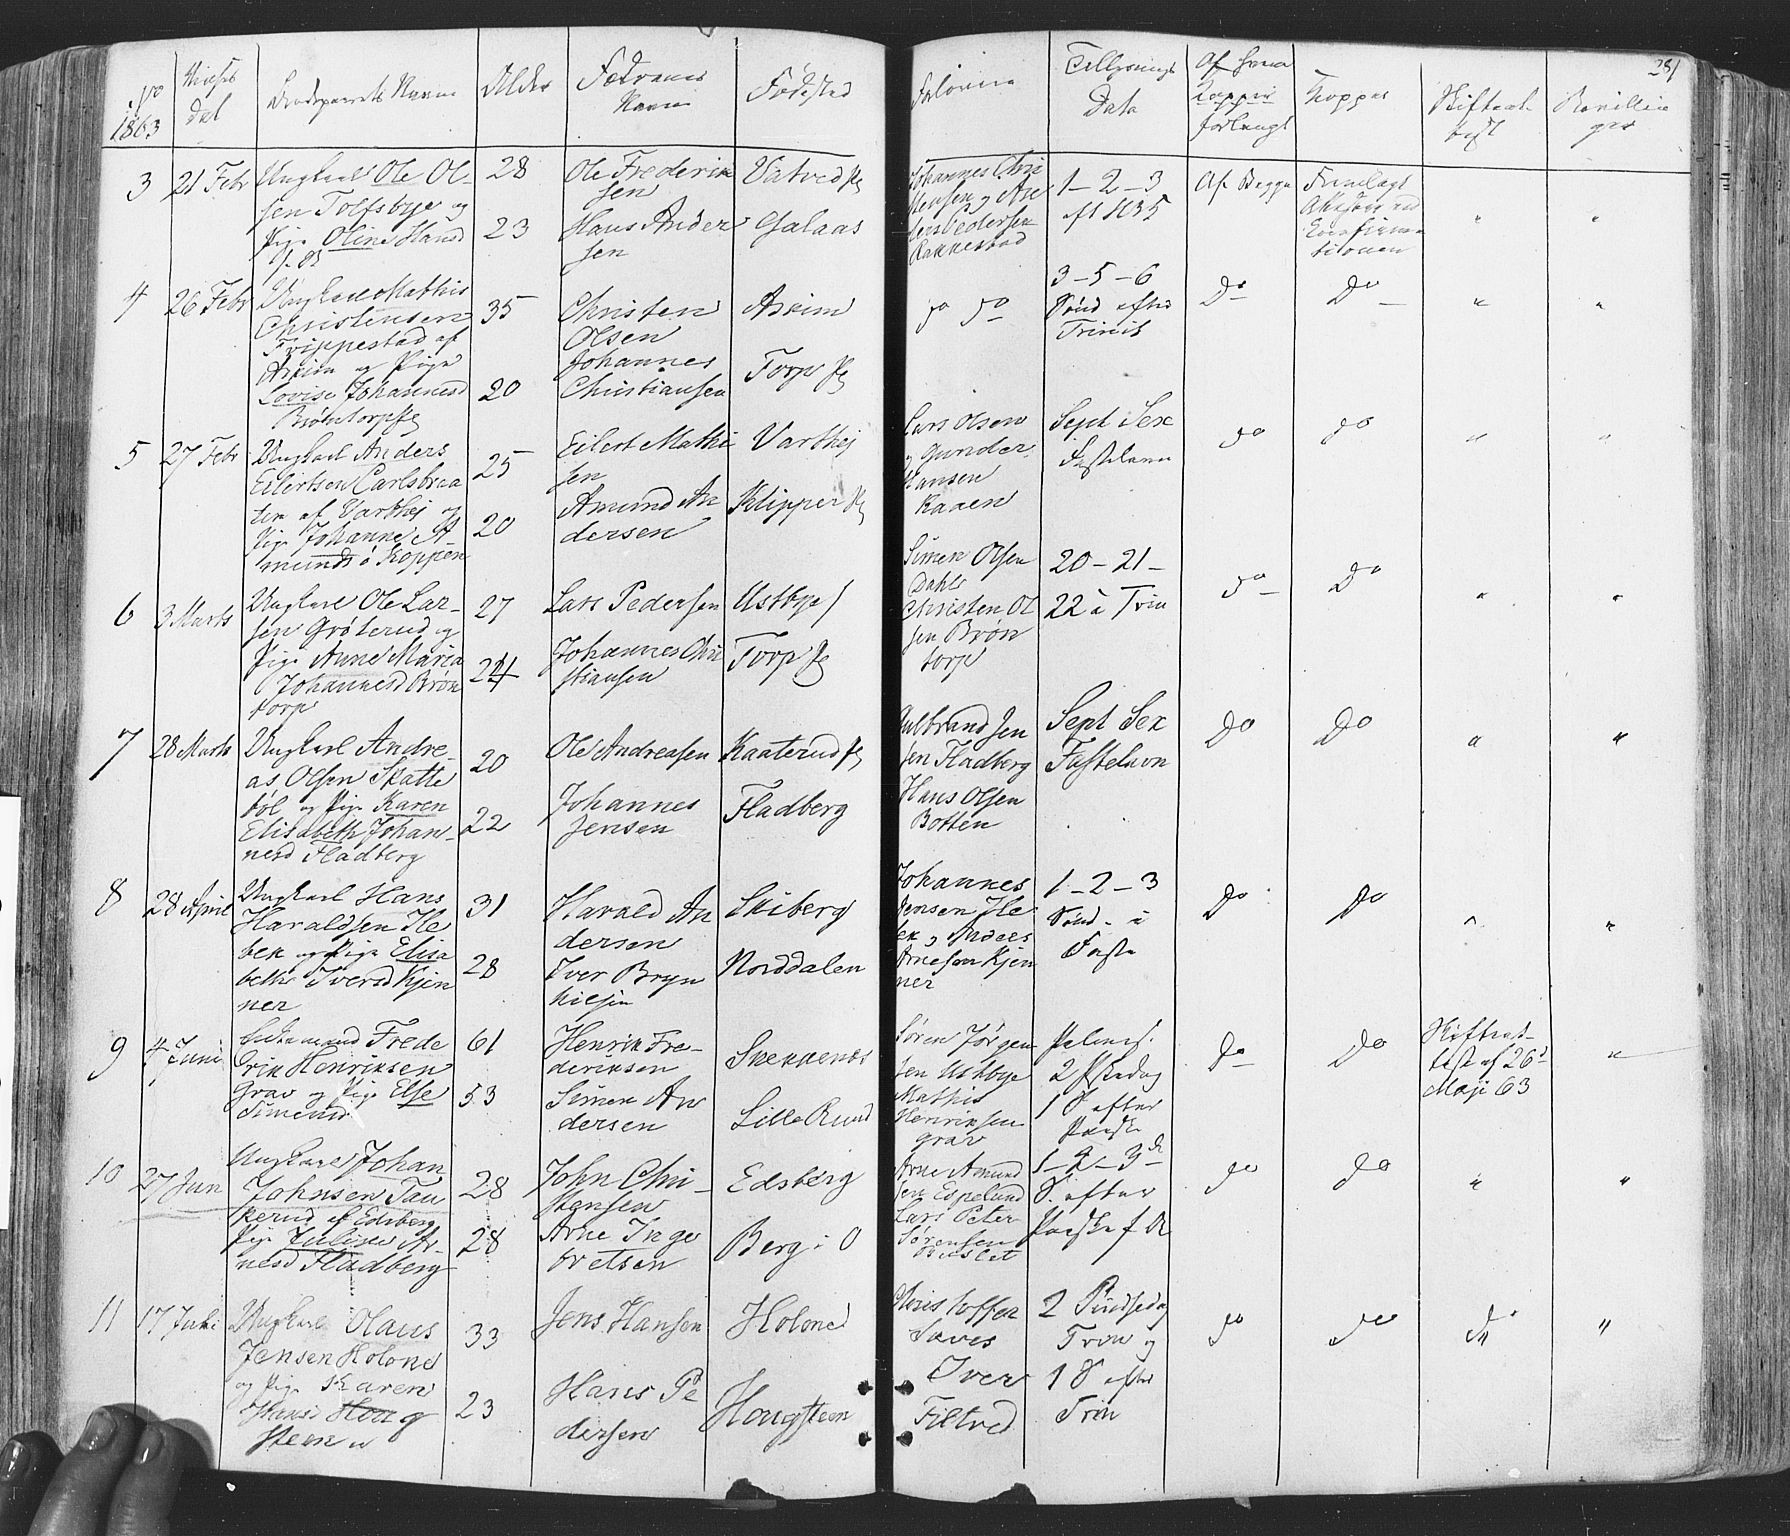 No
1863
Vielses
dat
Brudeparrets Navn
Alder
Fædrenes
Navn
Fødested
Forlovere
Tillysnings
Data
Af hvem
forlangt
Kopper
Skifteat
test
Bevillin
ger
281
3
21 Febr
Ungkarl Ole Ol-
sen Tolfsbye og
Pige Oline Hansd
28
23
Ole Frederik
sen
Hans Ander
sen
Vatvedj
Galaas
Johannes Chri
stensen og An
ders Pedersen
Rakkestad
1 - 2 - 3
eft H3K
Af Begge
Attester ved
Confirma
tionen
"
"
4
26 Febr
Ungkarl Mathis
Christensen
Trippestad af
Askim og Pige
Lovise Johannesd
Brøntorp
35
20
Christen
Olsen
Johannes
Christiansen
Askim
Torp
do do
3 - 5 - 6
Sønd efter
Trinit
Do
Do
"
"
5
27 Febr
Ungkarl Anders
Eilertsen Carlsbraa
ten af Varthej og
Pige Johanne A-
mundsd Koppen
25
20
Eilert Mathi
sen
Amund An
dersen
Varthej
Klipper
Lars Olsen
og Gunder
Hansen
Kaaen
Sept Sex
Fastelavn
do
do
"
"
6
3 Marts
Ungkarl Ole Lar-
sen Grøterud og
Pige Anne Maria
Johannesd Brøn
torp
27
24
Lars Pedersen
Johannes Chri
stiansen
Ustbye
Torp
Simen Olsen
Dahl
Christen Ol
sen Brøn
torp
20 - 21 -
22 à Trin
do
Do
"
"
7
28 Marts
Ungkarl Andre-
as Olsen Skatte
bøl og Pige Karen
Elisabeth Johan-
nesd Fladberg
20
22
Ole Andreasen
Johannes
Jensen
Kaaterud
Fladberg
Gulbrand Jen
sen Fladberg
Hans Olsen
Botten
Sept Sex
Fastelavn
Do
Do
"
"
8
28 April
Ungkarl Hans
Haraldsen He
bek og Pige Elisa
beth Iversd Kjen
ner
31
28
Harald An
dersen
Iver Bryn
hilsen
Skiberg
Norddalen
Johannes
Jensen He
bek og Anders
Arnesen Kjen
ner
1 - 2 - 3
Sønd - i
Faste
Do
Do
"
"
9
4 Juni
Enkemand Frede
rik Henriksen
Grav og Pige Else
Simensd
61
53
Henrik Fre-
deriksen
Simen An
dersen
Skekkenes
Lille Rud
Søren Jørgen
sen Ustbye
Mathis
Henriksen
Grav
Palmes.
2 Pskedag
1 S efter
Paaske
Do
Do
Skifteat-
test af 26d
Maji 63
"
10
27 Jun
Ungkarl Johan
Johnsen Tau
kerud af Edsberg
Pige Juline Ar-
nesd Fladberg
28
28
John Chri-
stensen
Arne Inge
bretsen
Edsberg
Berg i O
Arne Amund
sen Espelund
Lars Peter
Sørensen
1 - 2 - 3de
S. efter
Paaske
do
do
"
"
11
17 Juli
Ungkarl Olaus
Jensen Holone
og Pige Karen
Hansd Houg
steen
33
23
Jens Hansen
Hans Pe
dersen
Holone
Hougsteen
Iver
Filtved
2 Pindsedag
Trin og
1 S efter
Trin
do
do
do
"